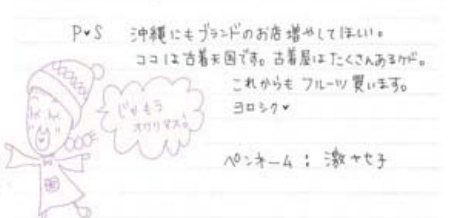 P♥S 沖縄にもブランドのお店増やしてほしい。
ココは古着天国です。古着屋はたくさんあるケド。
これからも フルーツ買います。
ヨロシク♥
じゃもう
オワリマス。
ペンネーム : 激ヤセ子